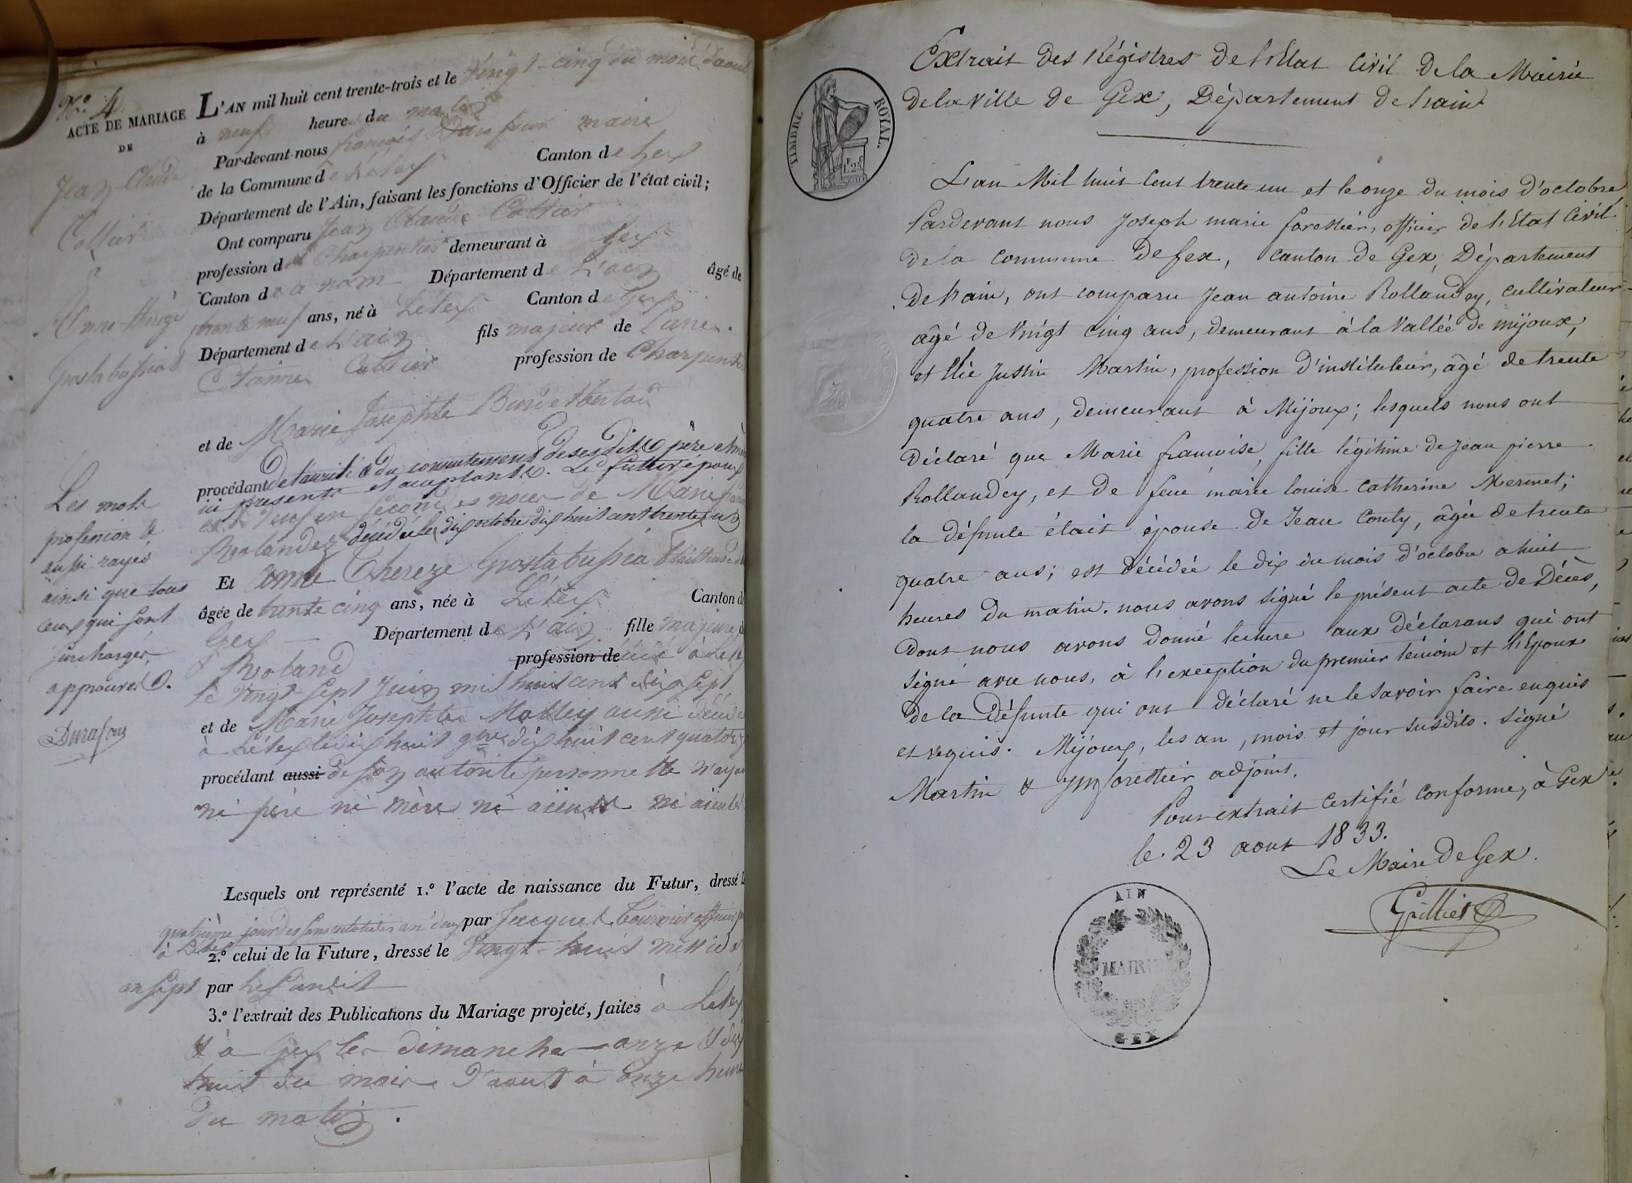 N.º 4
ACTE DE MARIAGE
DE
Jean Claude
Cottier
&
Anne-thérèze
L'AN mil huit cent trente-trois et le vingt-cinq du mois d'aout
à neuf heures du matin
Par-devant nous françois Durafour maire
de la Commune de Lélex Canton de Gex
Département de l'Ain, faisant les fonctions d'Officier de l'état civil;
Ont comparu Jean Claude Cottier
profession de Charpentier demeurant à Gex
Canton du dit nom Département de L'ain âgé de
trente neuf ans, né à Lélex Canton de Gex
Département de L'ain fils majeur de
Cottier profession de Charpentier
et de Marie Josephte
procédant de l'autorité & du consentement de sesdits père et mère
ici présents et acceptants. Le futur époux
est veuf en seconde noces de Marie
Rolandez décédée le dix octobre dix huit cent trente un
Et Anne Thereze
âgée de trente cinq ans, née à Lélex Canton de
Gex Département de L'ain fille majeure de
Roland profession de
le vingt sept Juin mil huit cent dix sept
et de Marie Josephte aussi décédée
à Lélex le dix huit dix huit cent quatorze
procédant aussi de son autorité personnelle n'ayant
ni père ni mère ni aieux ni aieules
Les mots
profession &
aussi rayés
ainsi que tous
ceux qui sont
surchargés,
approuvés.
Durafour
Lesquels ont représenté 1.º l'acte de naissance du Futur, dressé le
par Jacques Tournier officier
2.º celui de la Future, dressé le Vingt-huit messidor
an sept par
3.º l'extrait des Publications du Mariage projeté, faites à Lélex
& à Gex les dimanches onze & dix
huit du mois d'aout à onze heures
du matin.
Extrait des Régistres de l'Etat Civil de la Mairie
de la Ville de Gex, Département de l'ain
TIMBRE ROYAL.
L'an Mil huit Cent trente un et le onze du mois d'octobre
Pardevant nous Joseph marie forestier, officier de l'Etat Civil
de la commune de Gex, canton de Gex, Département
de l'ain, ont comparu Jean antoine Rollandey, cultivateur
âgé de vingt cinq ans, demeurant à la vallée de mijoux,
et Elie Justin Martin, profession d'instituteur, âgé de trente
quatre ans, demeurant à Mijoux; lesquels nous ont
Déclaré que Marie francoise, fille légitime de Jean pierre
Rollandey, et de feue marie louise Catherine Mermet;
la défunte était épouse de Jean Couty, âgée de trente
quatre ans; est décédée le dix du mois d'octobre a huit
heures du matin. nous avons signé le présent acte de Décès,
dont nous avons donné lecture aux déclarans qui ont
signé avec nous, à l'exception du premier témoin et l'Epoux
de la Défunte qui ont déclaré ne le savoir faire enquis
et requis. Mijoux, les an, mois et jour susdits. signé
Martin & jm forestier adjoint.
Pour extrait certifié conforme, à Gex
le 23 aout 1833.
Le Maire De Gex.
AIN
MAIRIE
GEX